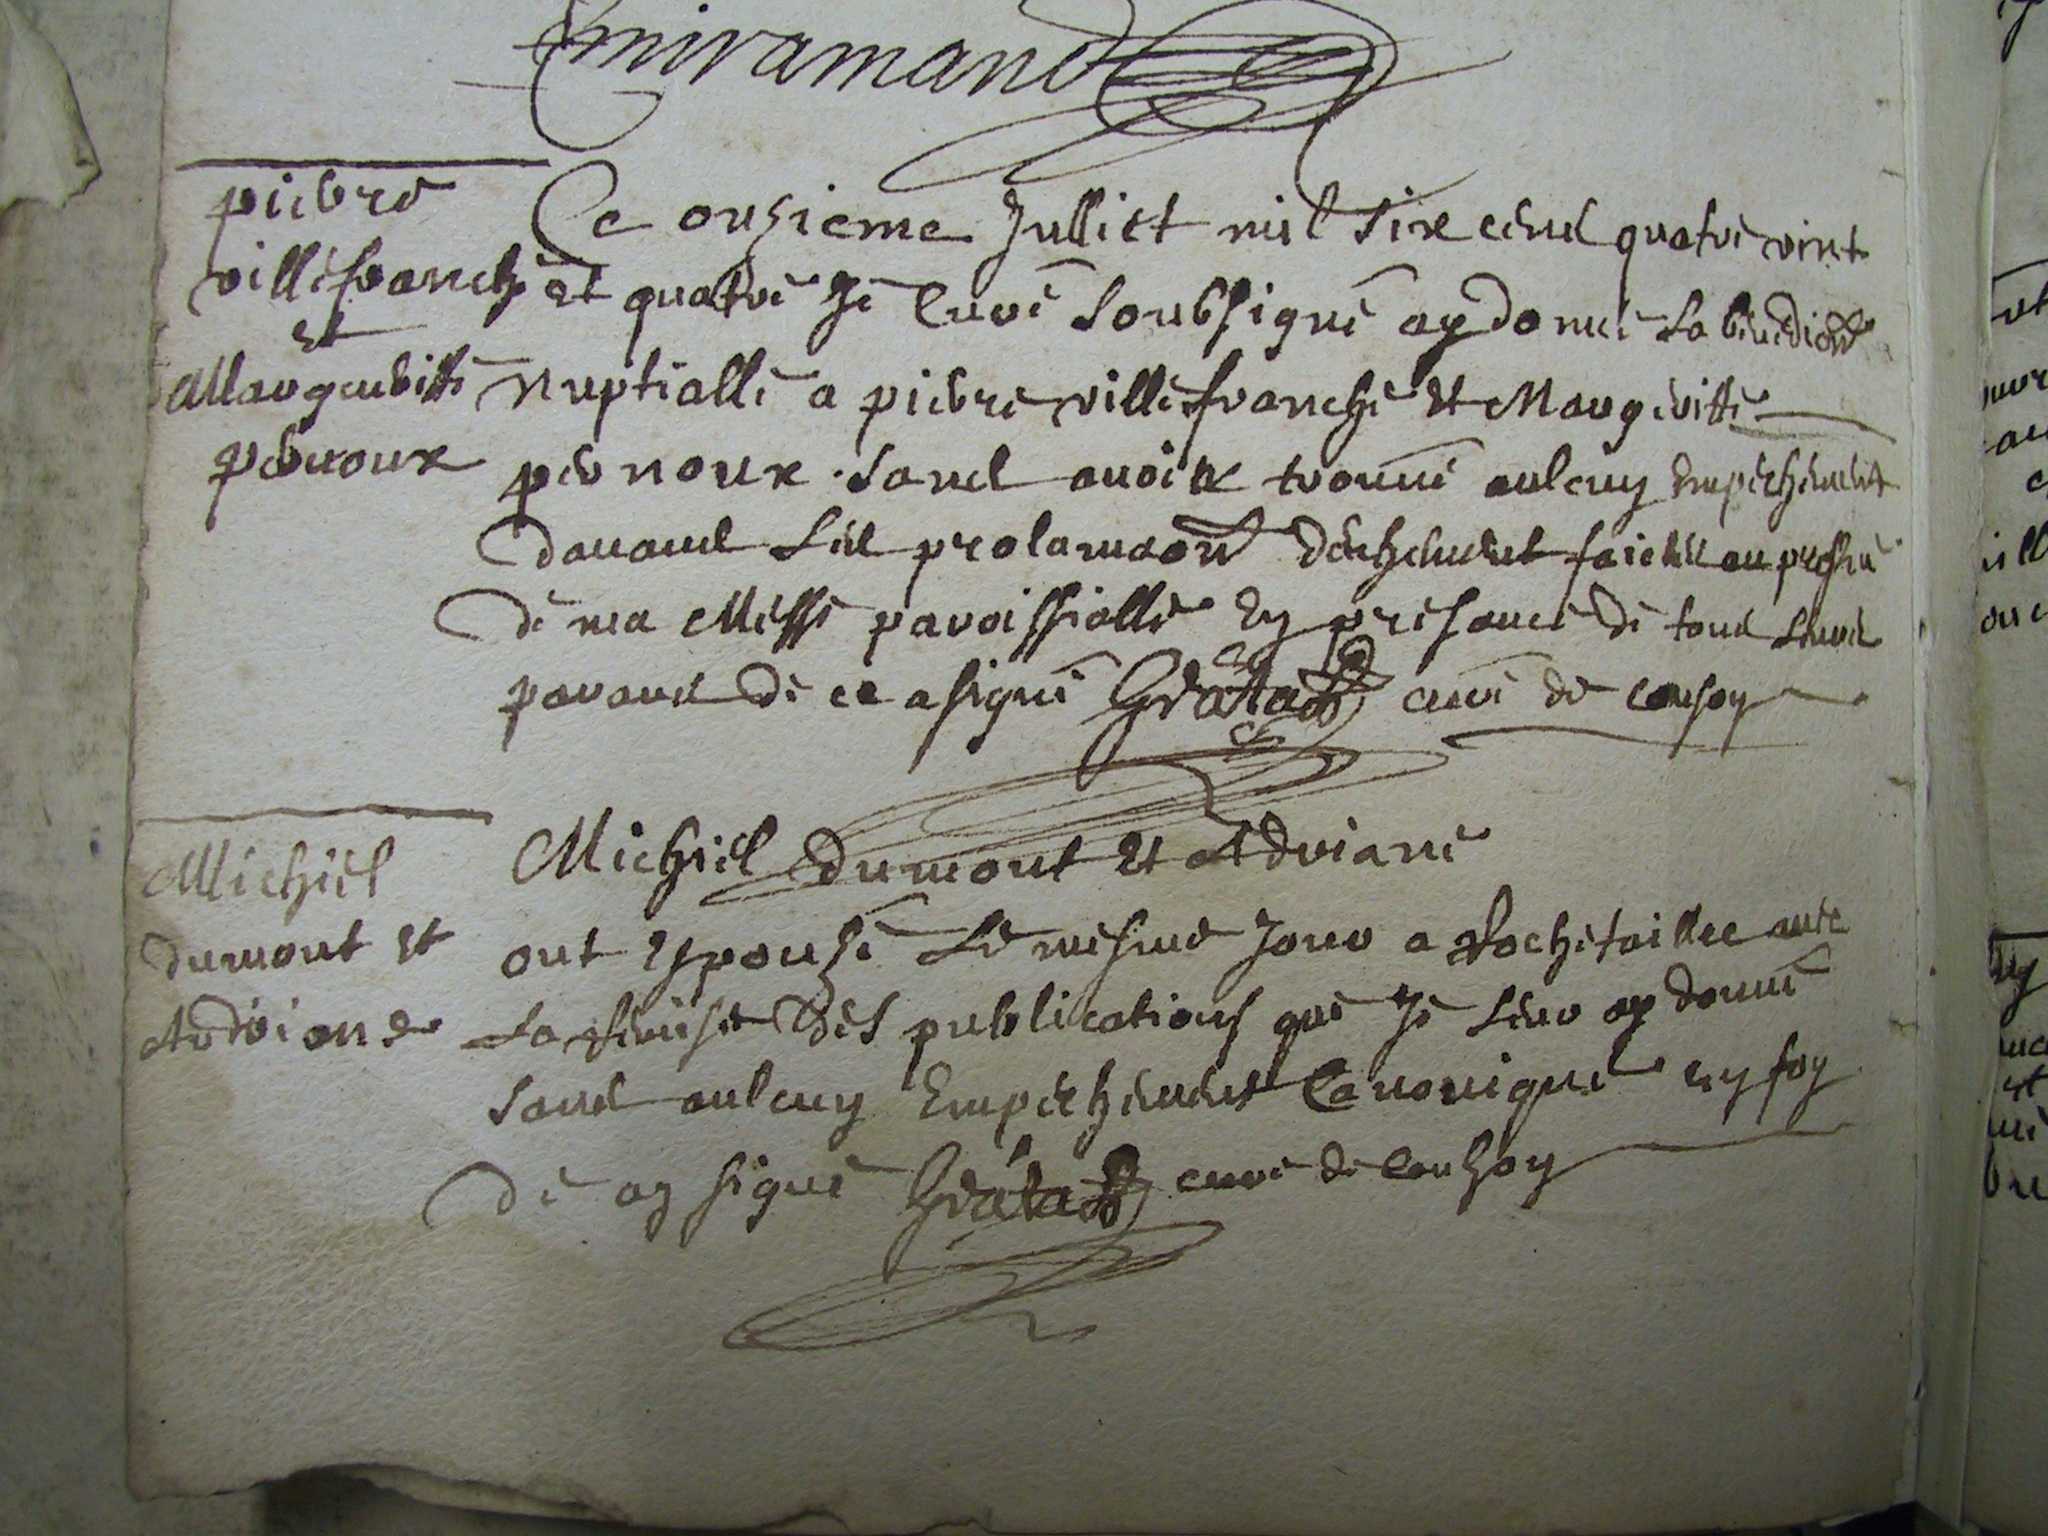 miramand
pierre
villefranche
et
Margueritte
pernoux
Ce onzieme Julliet mil six cens quatre vint
et quatre Je Curé soubsigné ay donné la benediōn
Nuptialle a pierre villefranche et Margeritte
pernoux sans avoir trouvé aulcun Empechement
davans les proclamaōns deuhement faictes au prosne
de ma Messe paroissialle En presance de tous leurs
parans de ce a signé Grata curé de couzon
Michiel
dumont et
Andriane
Michiel dumont et Adriane
ont Espousé le mesme Jour a Rochetaillee avec
la remise des publications que Je leur ay donné
sans aulcun Empechement Canonique en foy
de ay signé Grata curé de Couzon